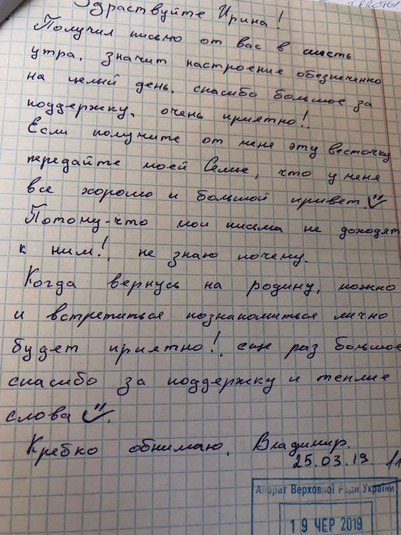 Здраствуйте Ирина!
Получил письмо от вас в шесть
утра. значит настроение обезпеченно
на целый день. спасибо большое за
поддержку, очень приятно!.
Если получите от меня эту весточку
передайте моей Семье, что у меня
все хорошо и большой привет
Потому-что мои письма не доходят
к ним!, не знаю почему.
Когда вернусь на родину, можно
и встретиться познакомиться лично
будет приятно!. еще раз большое
спасибо за поддержку и теплые
слова
Крепко обнимаю, Владимир.
25.03.19
Апарат Верховної Ради України
19 ЧЕР 2019